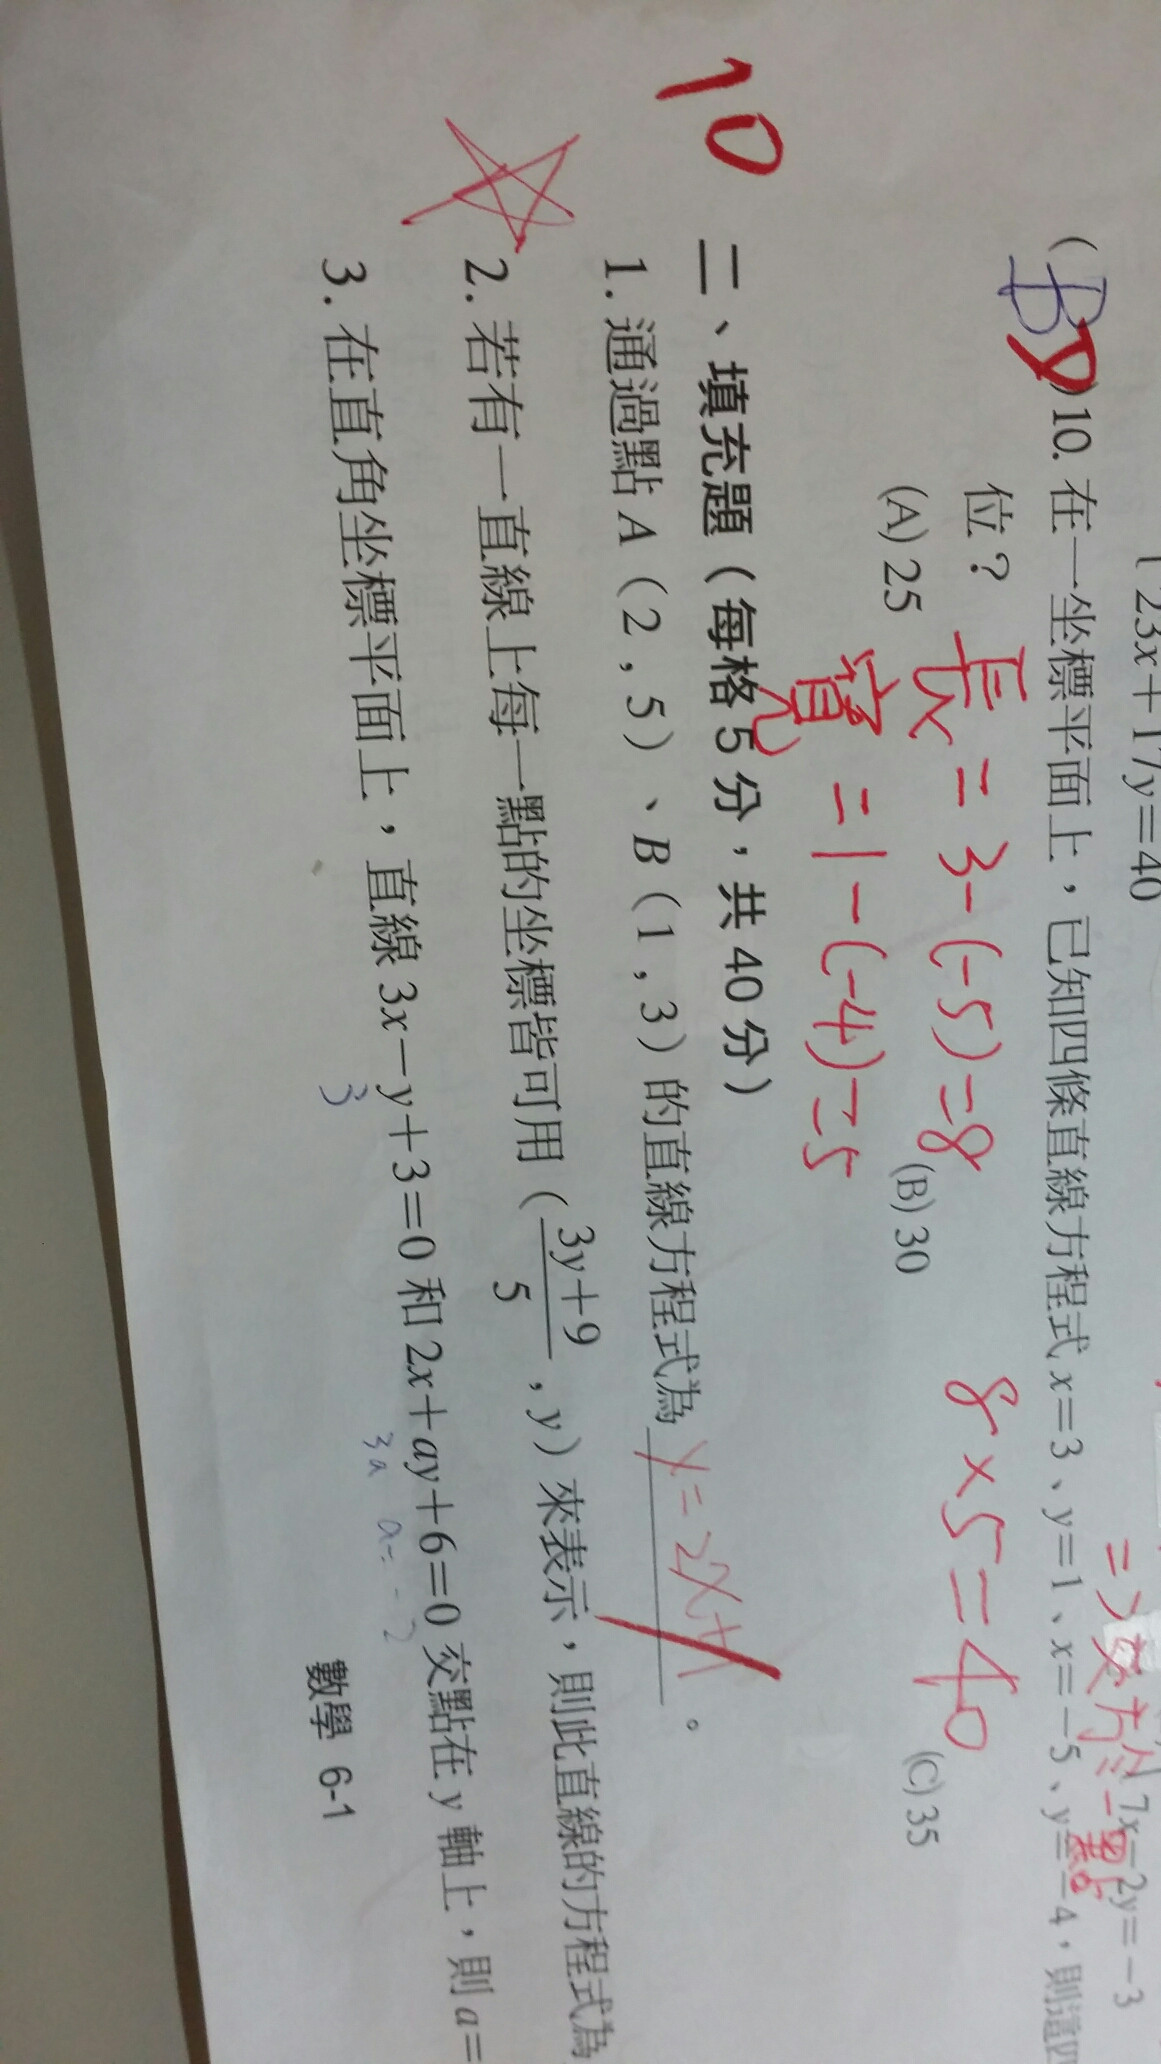 23x+17y=40
7x-2y=-3
=>交於一點
(BD)10. 在一坐標平面上，已知四條直線方程式 x=3、y=1、x=-5、y=-4，則這四
位？
長=3-(-5)=8
8×5=40
(A) 25 (B) 30 (C) 35
寬=1-(-4)=5
10
二、填充題（每格 5 分，共 40 分）
1. 通過點 A（2 , 5）、B（1 , 3）的直線方程式為 y=2x+1 。
2. 若有一直線上每一點的坐標皆可用（(3y+9)/5 , y）來表示，則此直線的方程式為
3. 在直角坐標平面上，直線 3x-y+3=0 和 2x+ay+6=0 交點在 y 軸上，則 a=
3 3a a=-2
數學 6-1